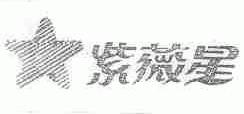 紫薇星